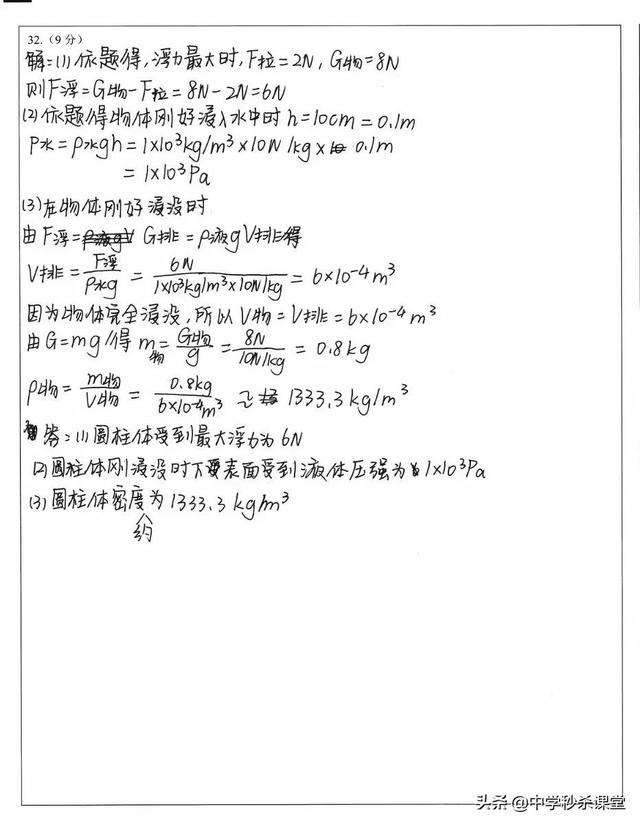 32.（9分）
解:(1)依题得,浮力最大时,F拉=2N,G物=8N
则F浮=G物-F拉=8N-2N=6N
(2)依题得物体刚好浸入水中时h=10cm=0.1m
P水=ρ水gh=1×10³kg/m³×10N/kg×0.1m
=1×10³Pa
(3)在物体刚好浸没时
由F浮=G排=ρ液gV排得
V排=F浮/ρ水g=6N/1×10³kg/m³×10N/kg=6×10-4m³
因为物体完全浸没,所以V物=V排=6×10-4m³
由G=mg得m物=G物/g=8N/10N/kg=0.8kg
ρ物=m物/V物=0.8kg/6×10-4m³≈1333.3kg/m³
答:(1)圆柱体受到最大浮力为6N
(2)圆柱体刚浸没时下表面受到液体压强为1×10³Pa
(3)圆柱体密度约为1333.3kg/m³
头条@中学秒杀课堂